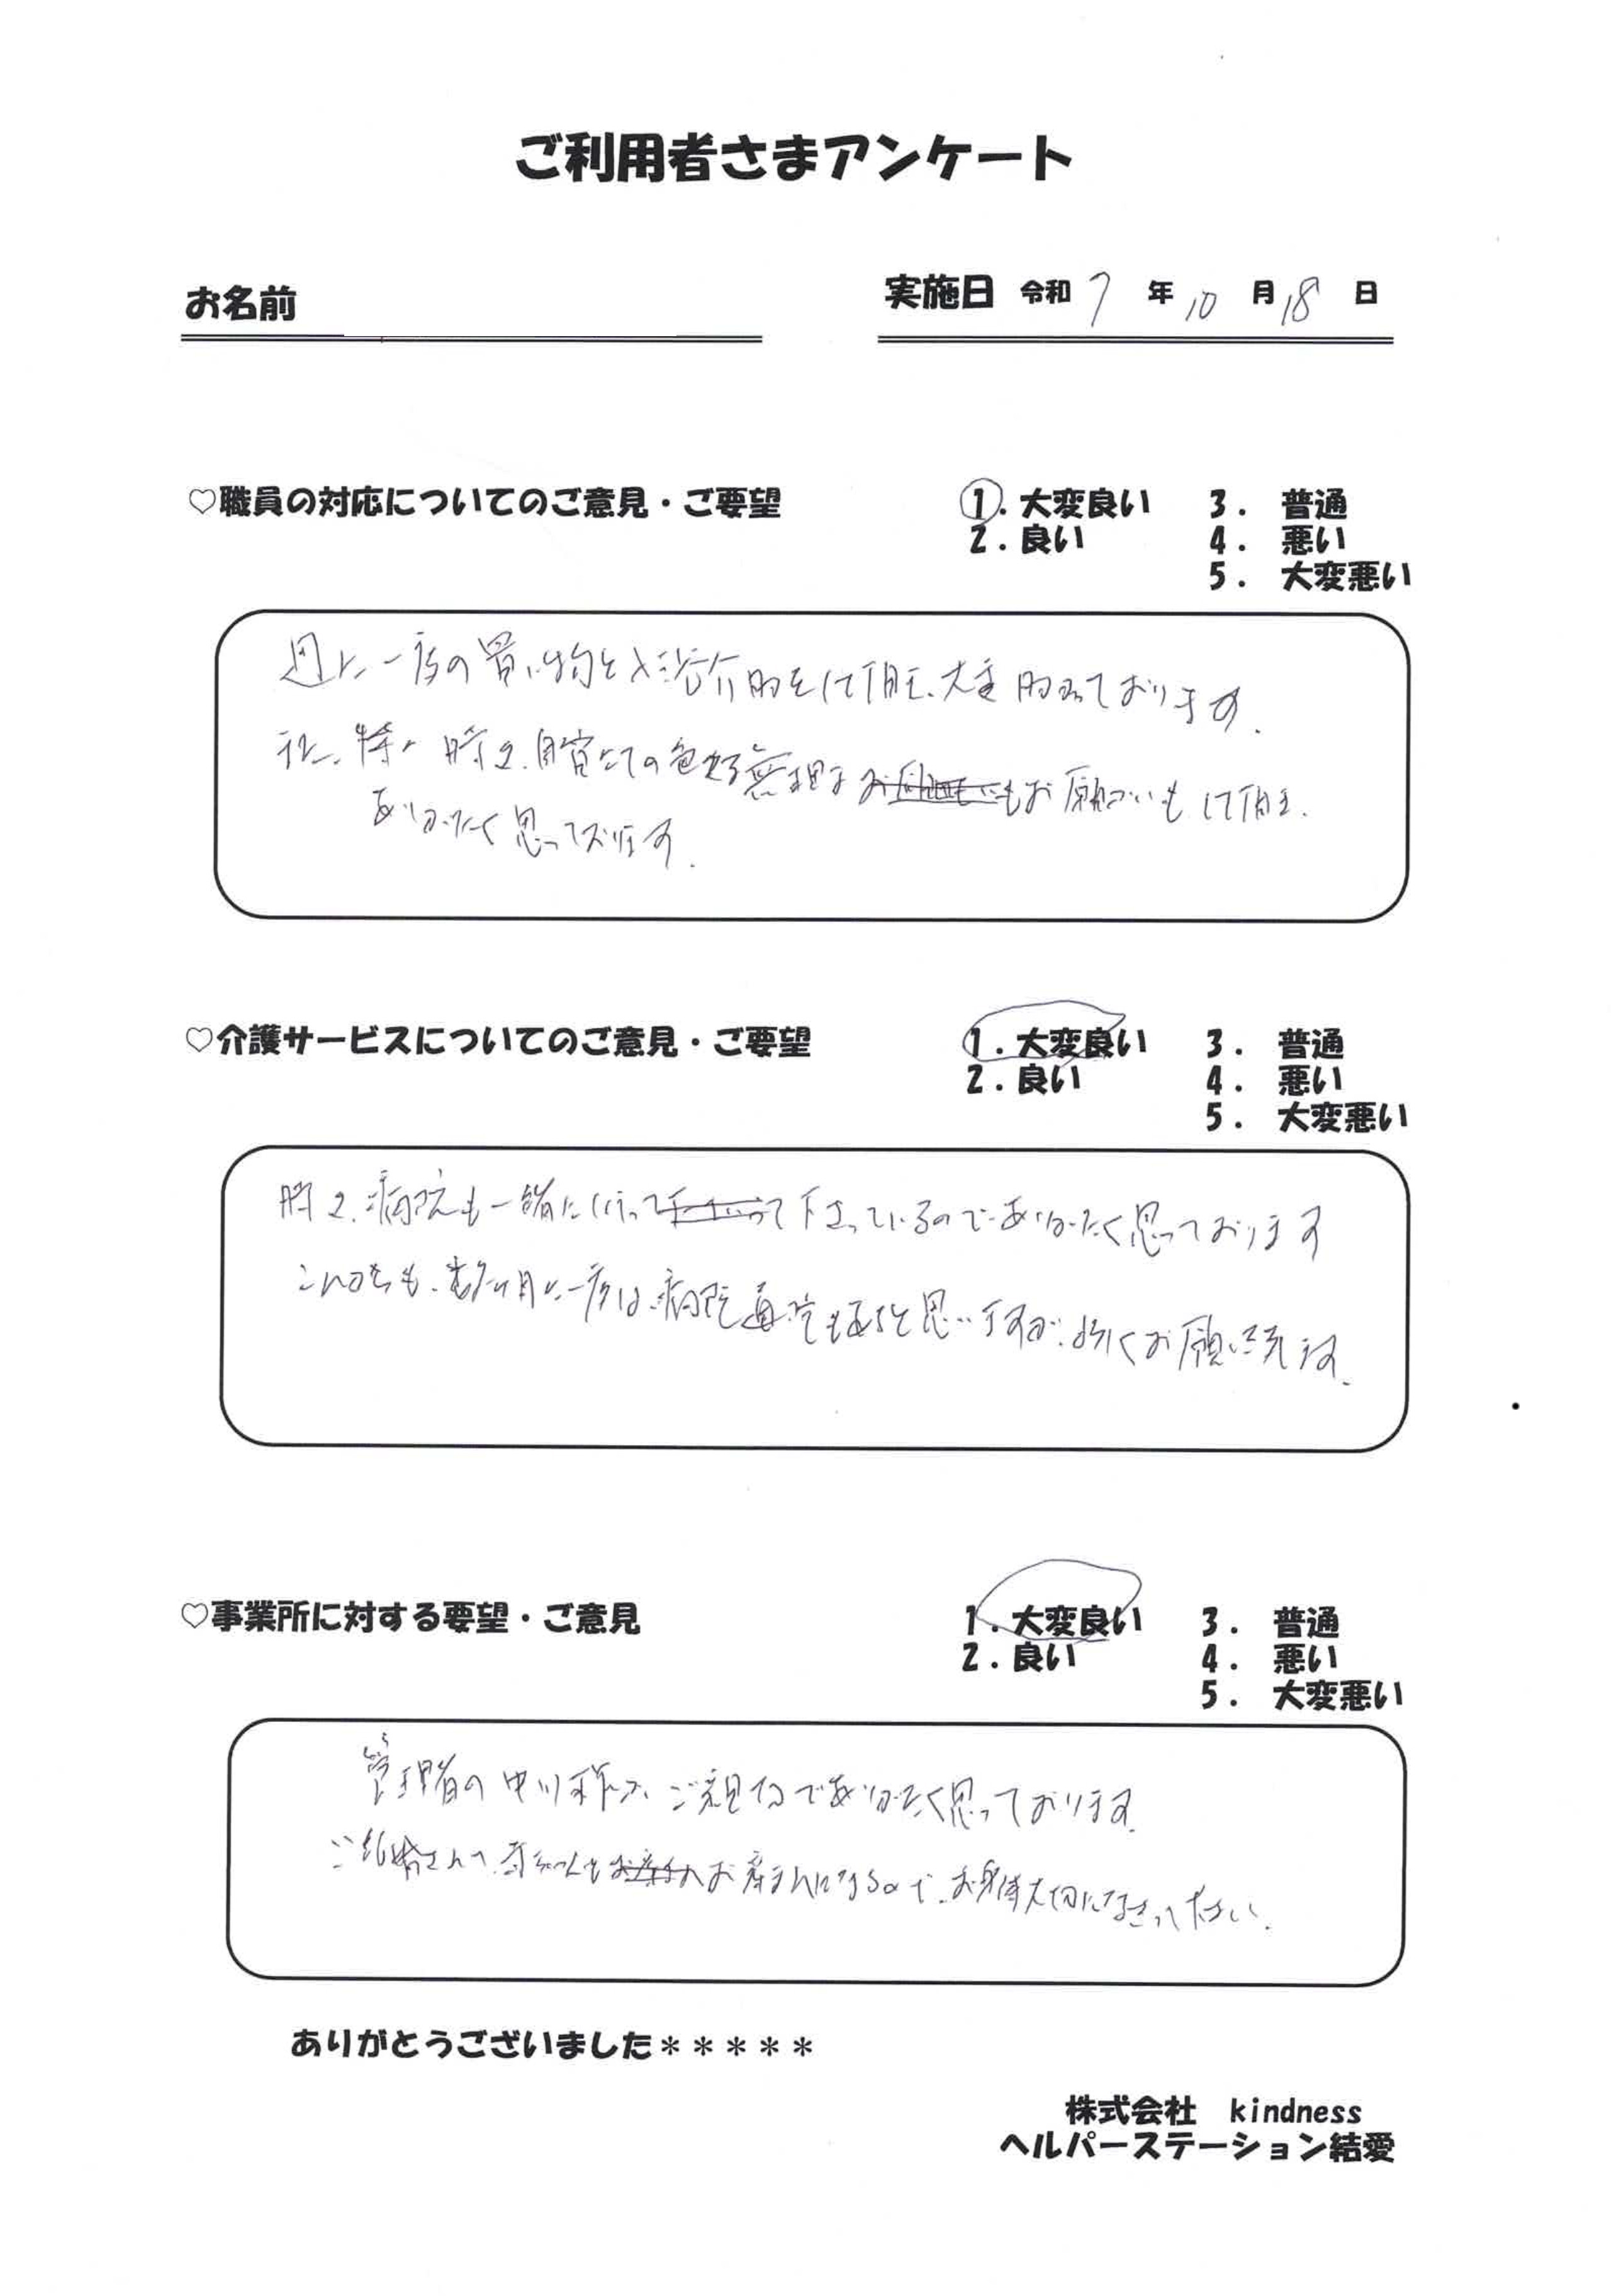 ご利用者さまアンケート
お名前
実施日 令和 7 年 10 月 18 日
♡職員の対応についてのご意見・ご要望
1. 大変良い 3. 普通
2. 良い 4. 悪い
5. 大変悪い
週に一度の買い物と入浴介助をして頂き、大変助かっております。
時々、無理なお願いもして頂き、
ありがたく思っております。
♡介護サービスについてのご意見・ご要望
1. 大変良い 3. 普通
2. 良い 4. 悪い
5. 大変悪い
時々、病院も一緒に行って下さっているのでありがたく思っております
これからも、数ヶ月に一度は、病院通院もあると思いますが、よろしくお願い致します。
♡事業所に対する要望・ご意見
1. 大変良い 3. 普通
2. 良い 4. 悪い
5. 大変悪い
管理者の中川様が、ご親切でありがたく思っております。
ご結婚されて、赤ちゃんもお産まれになるので、お身体大切になさって下さい。
ありがとうございました＊＊＊＊＊
株式会社 kindness
ヘルパーステーション結愛